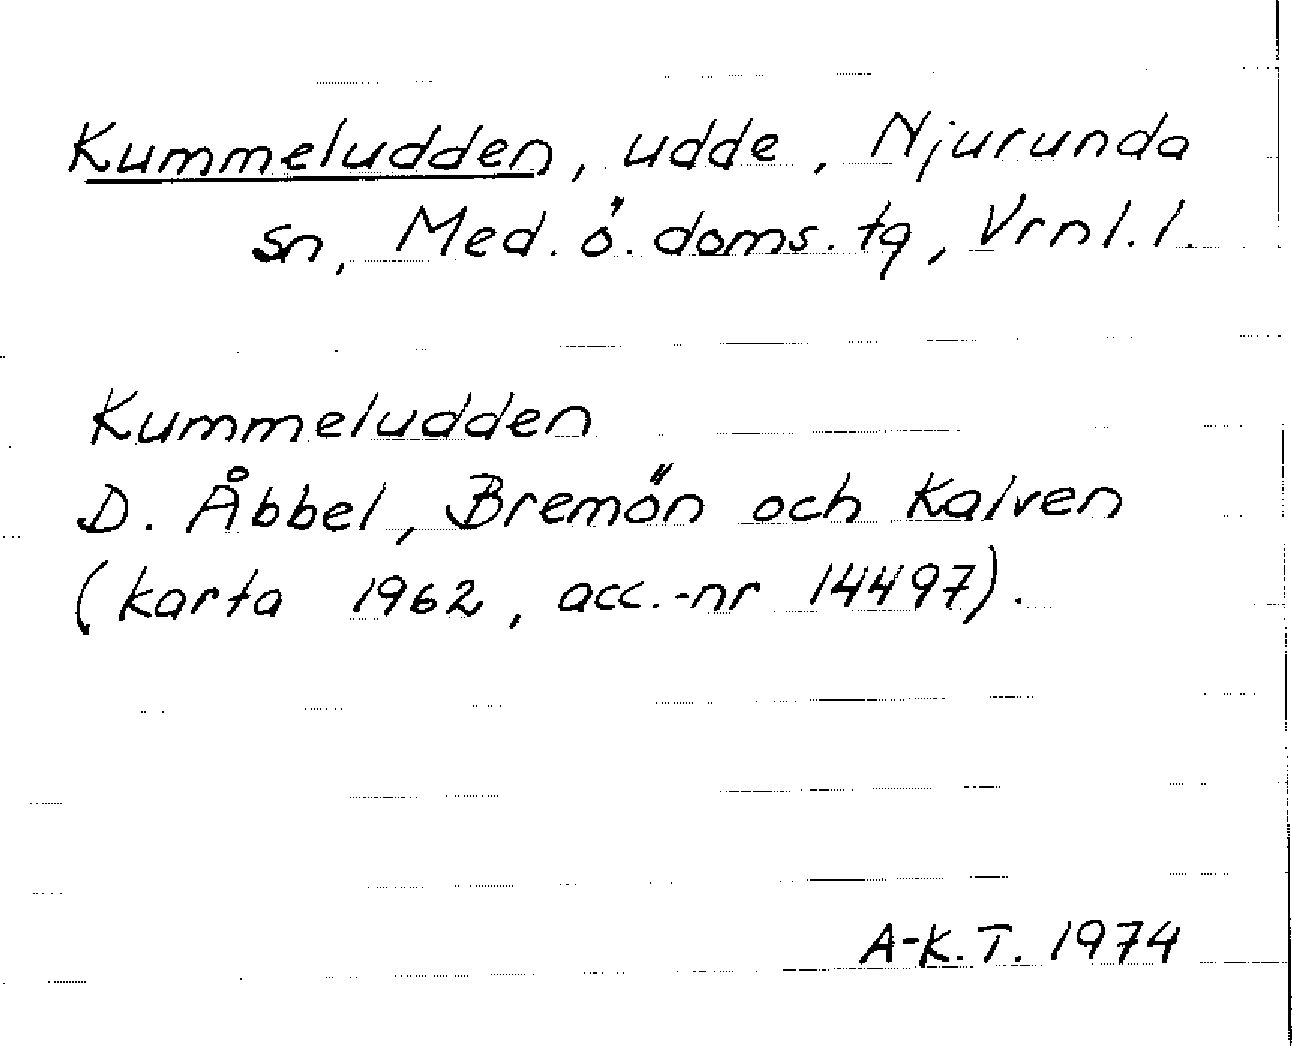 Kummeludden, udde, Njurunda
sn, Med. ö. doms. tg, Vrnl. l.
Kummeludden
D. Åbbel, Bremön och Kalven
(karta 1962, acc.-nr 14497).
A-K.T. 1974